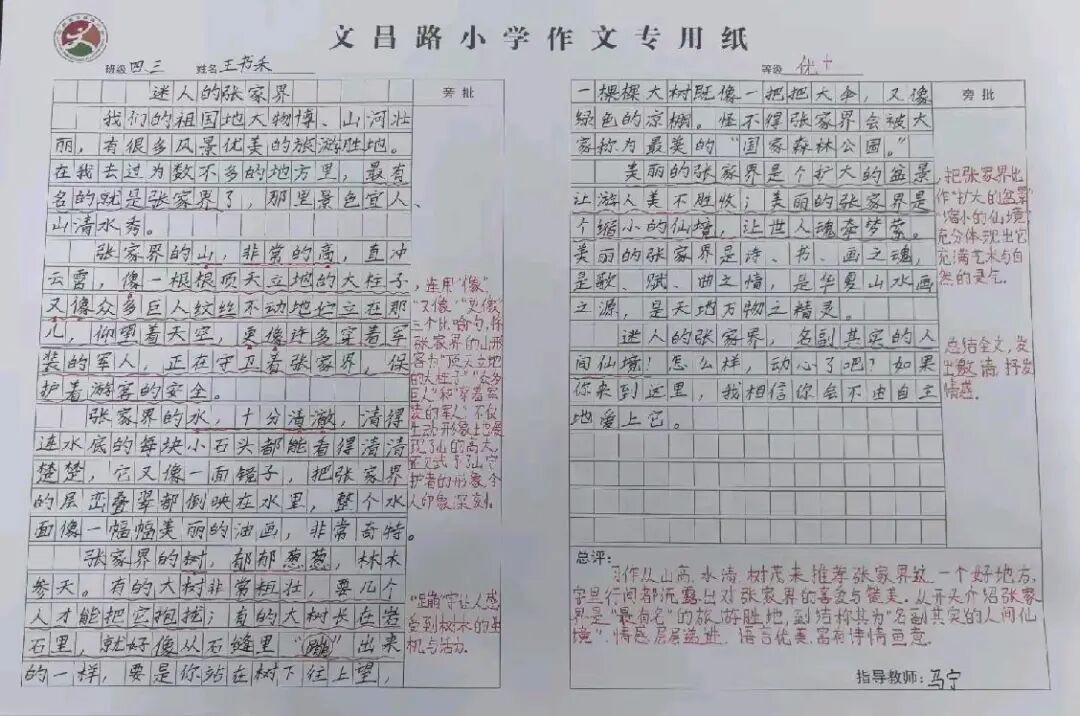 文昌路小学作文专用纸
班级 四.三 姓名 王书禾
等级 优+
迷人的张家界
旁批
我们的祖国地大物博、山河壮
丽，有很多风景优美的旅游胜地。
在我去过为数不多的地方里，最有
名的就是张家界了，那里景色宜人、
山清水秀。
张家界的山，非常的高，直冲
云霄，像一根根顶天立地的大柱子，
又像众多巨人纹丝不动地伫立在那
儿，仰望着天空，更像许多穿着军
装的军人，正在守卫着张家界，保
护着游客的安全。
张家界的水，十分清澈，清得
连水底的每块小石头都能看得清清
楚楚，它又像一面镜子，把张家界
的层峦叠翠都倒映在水里，整个水
面像一幅幅美丽的油画，非常奇特。
张家界的树，郁郁葱葱，林木
参天。有的大树非常粗壮，要几个
人才能把它抱拢；有的大树长在岩
石里，就好像从石缝里“蹦”出来
的一样，要是你站在树下往上望，
连用“像”
“又像”“更像”
三个比喻句，将
张家界的山形
容为“顶天立地
的大柱子”“众多
巨人”和“穿着军
装的军人”不仅
生动形象地展
现了山的高大，
还
山守
护者的形象，令
人印象深刻。
“蹦”字让人感
受到树木的生
机与活力。
一棵棵大树既像一把把大伞，又像
绿色的凉棚。怪不得张家界会被大
家称为最美的“国家森林公园。”
美丽的张家界是个扩大的盆景
让游人美不胜收；美丽的张家界是
个缩小的仙境，让世人魂牵梦萦。
美丽的张家界是诗、书、画之魂，
是歌、赋、曲之情，是华夏山水画
之源，是天地万物之精灵。
迷人的张家界，名副其实的人
间仙境！怎么样，动心了吧？如果
你来到这里，我相信你会不由自主
地爱上它。
旁批
把张家界比
作“扩大的盆景”
“缩小的仙境”
充分体现出它
充满艺术与自
然的灵气。
总结全文，发
出邀请，抒发
情感。
总评：
习作从山高、水清、树茂来推荐张家界这一个好地方，
字里行间都流露出对张家界的喜爱与赞美。从开头介绍张家
界是“最有名”的旅游胜地，到结称其为“名副其实的人间仙
境”，情感层层递进，语言优美，富有诗情画意。
指导教师：马宁